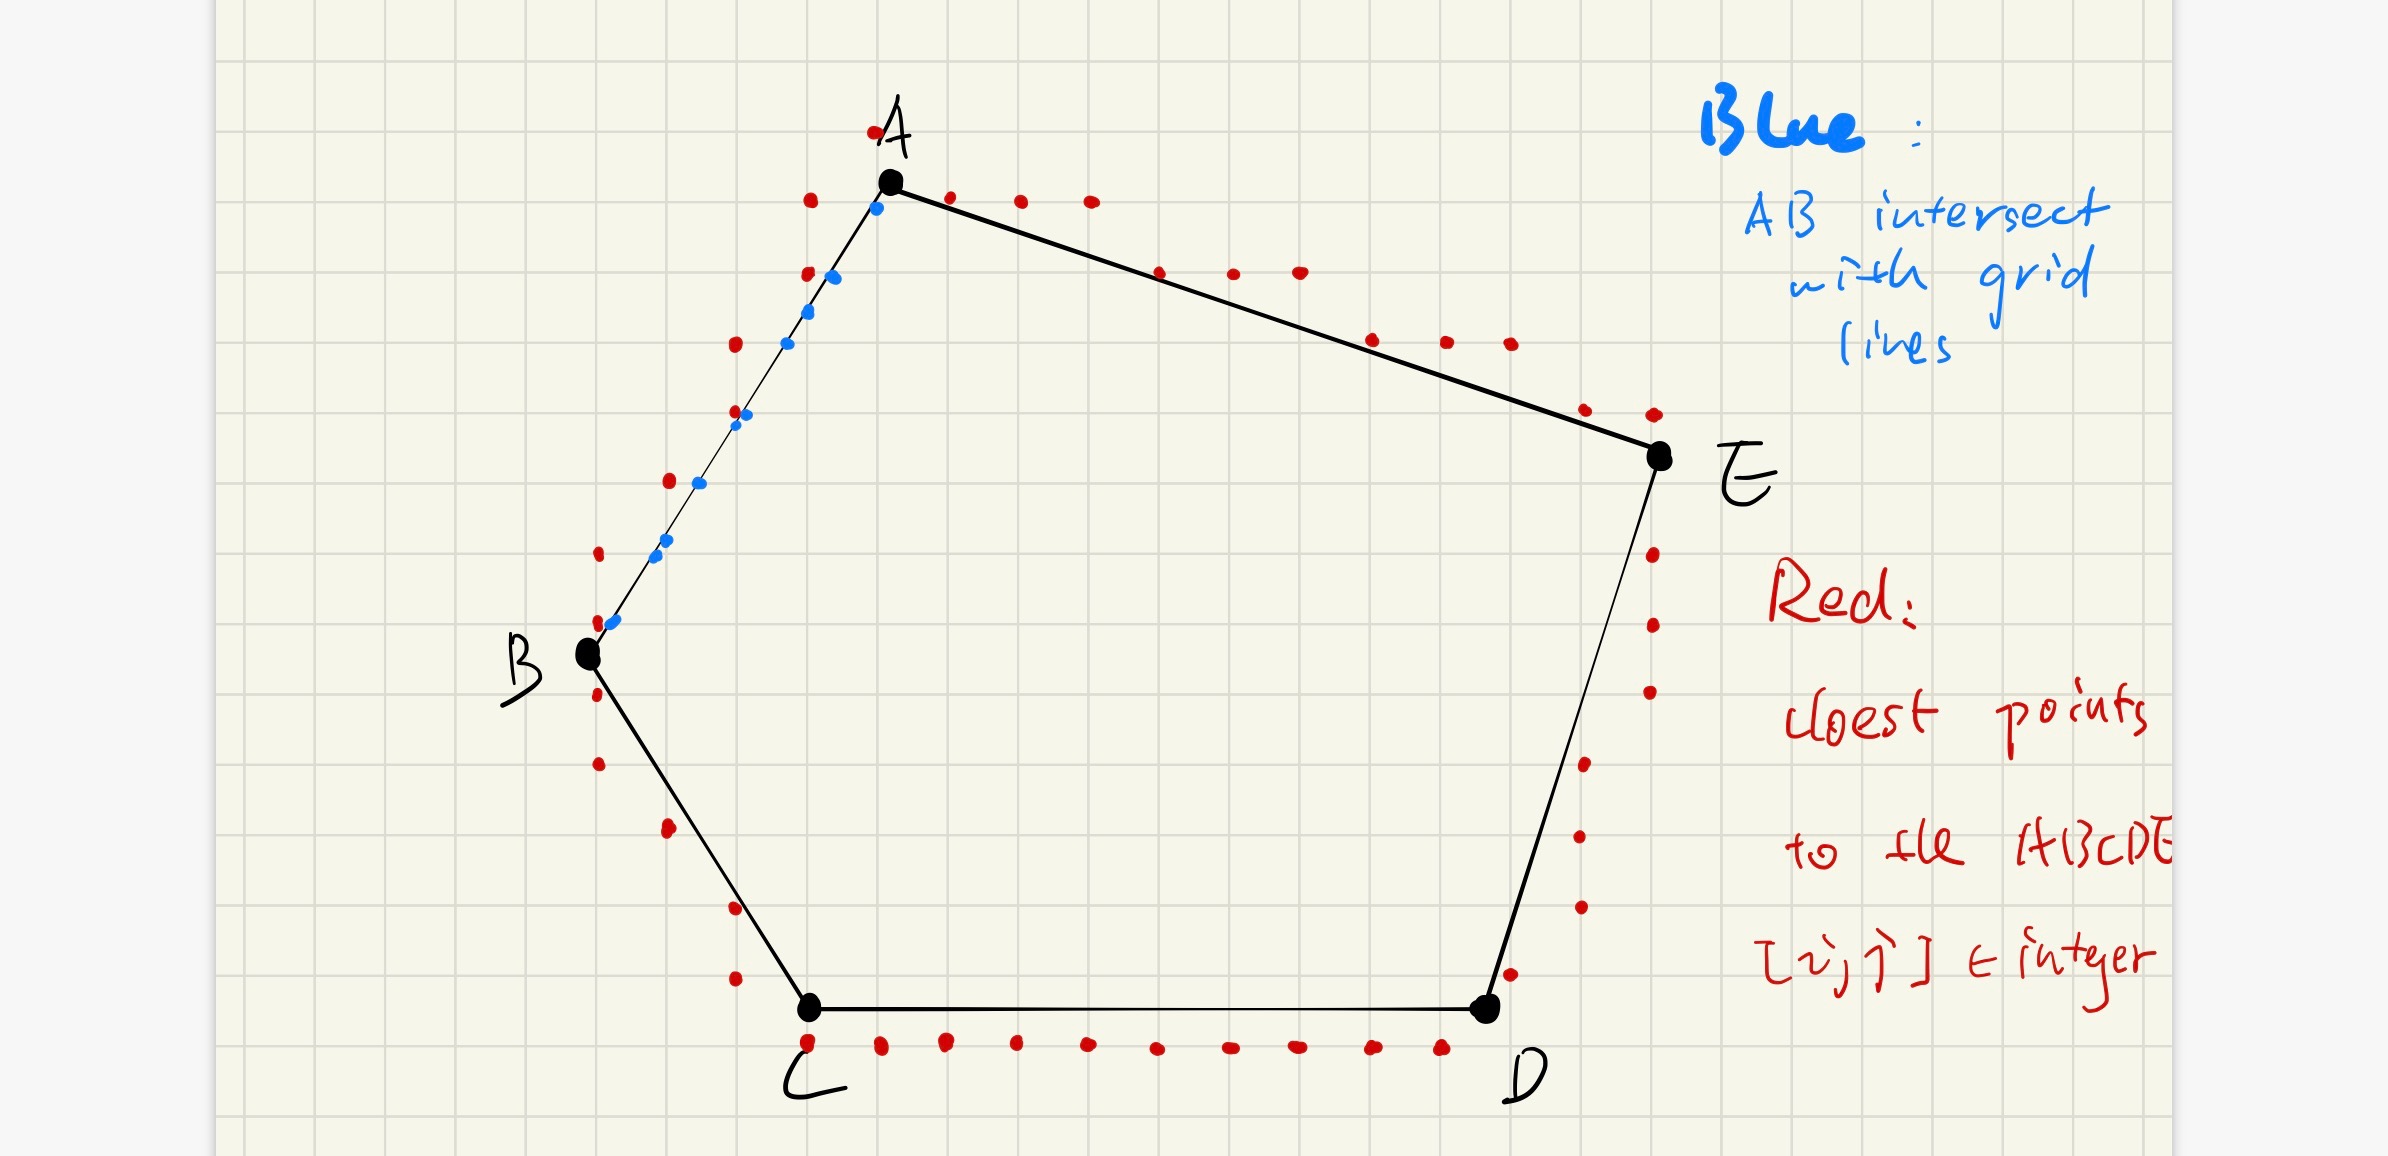 A
BLue :
AB intersect
with grid
lines
E
Red:
B
cloest points
to the ABCDE
[i, j] ∈ integer
C
D